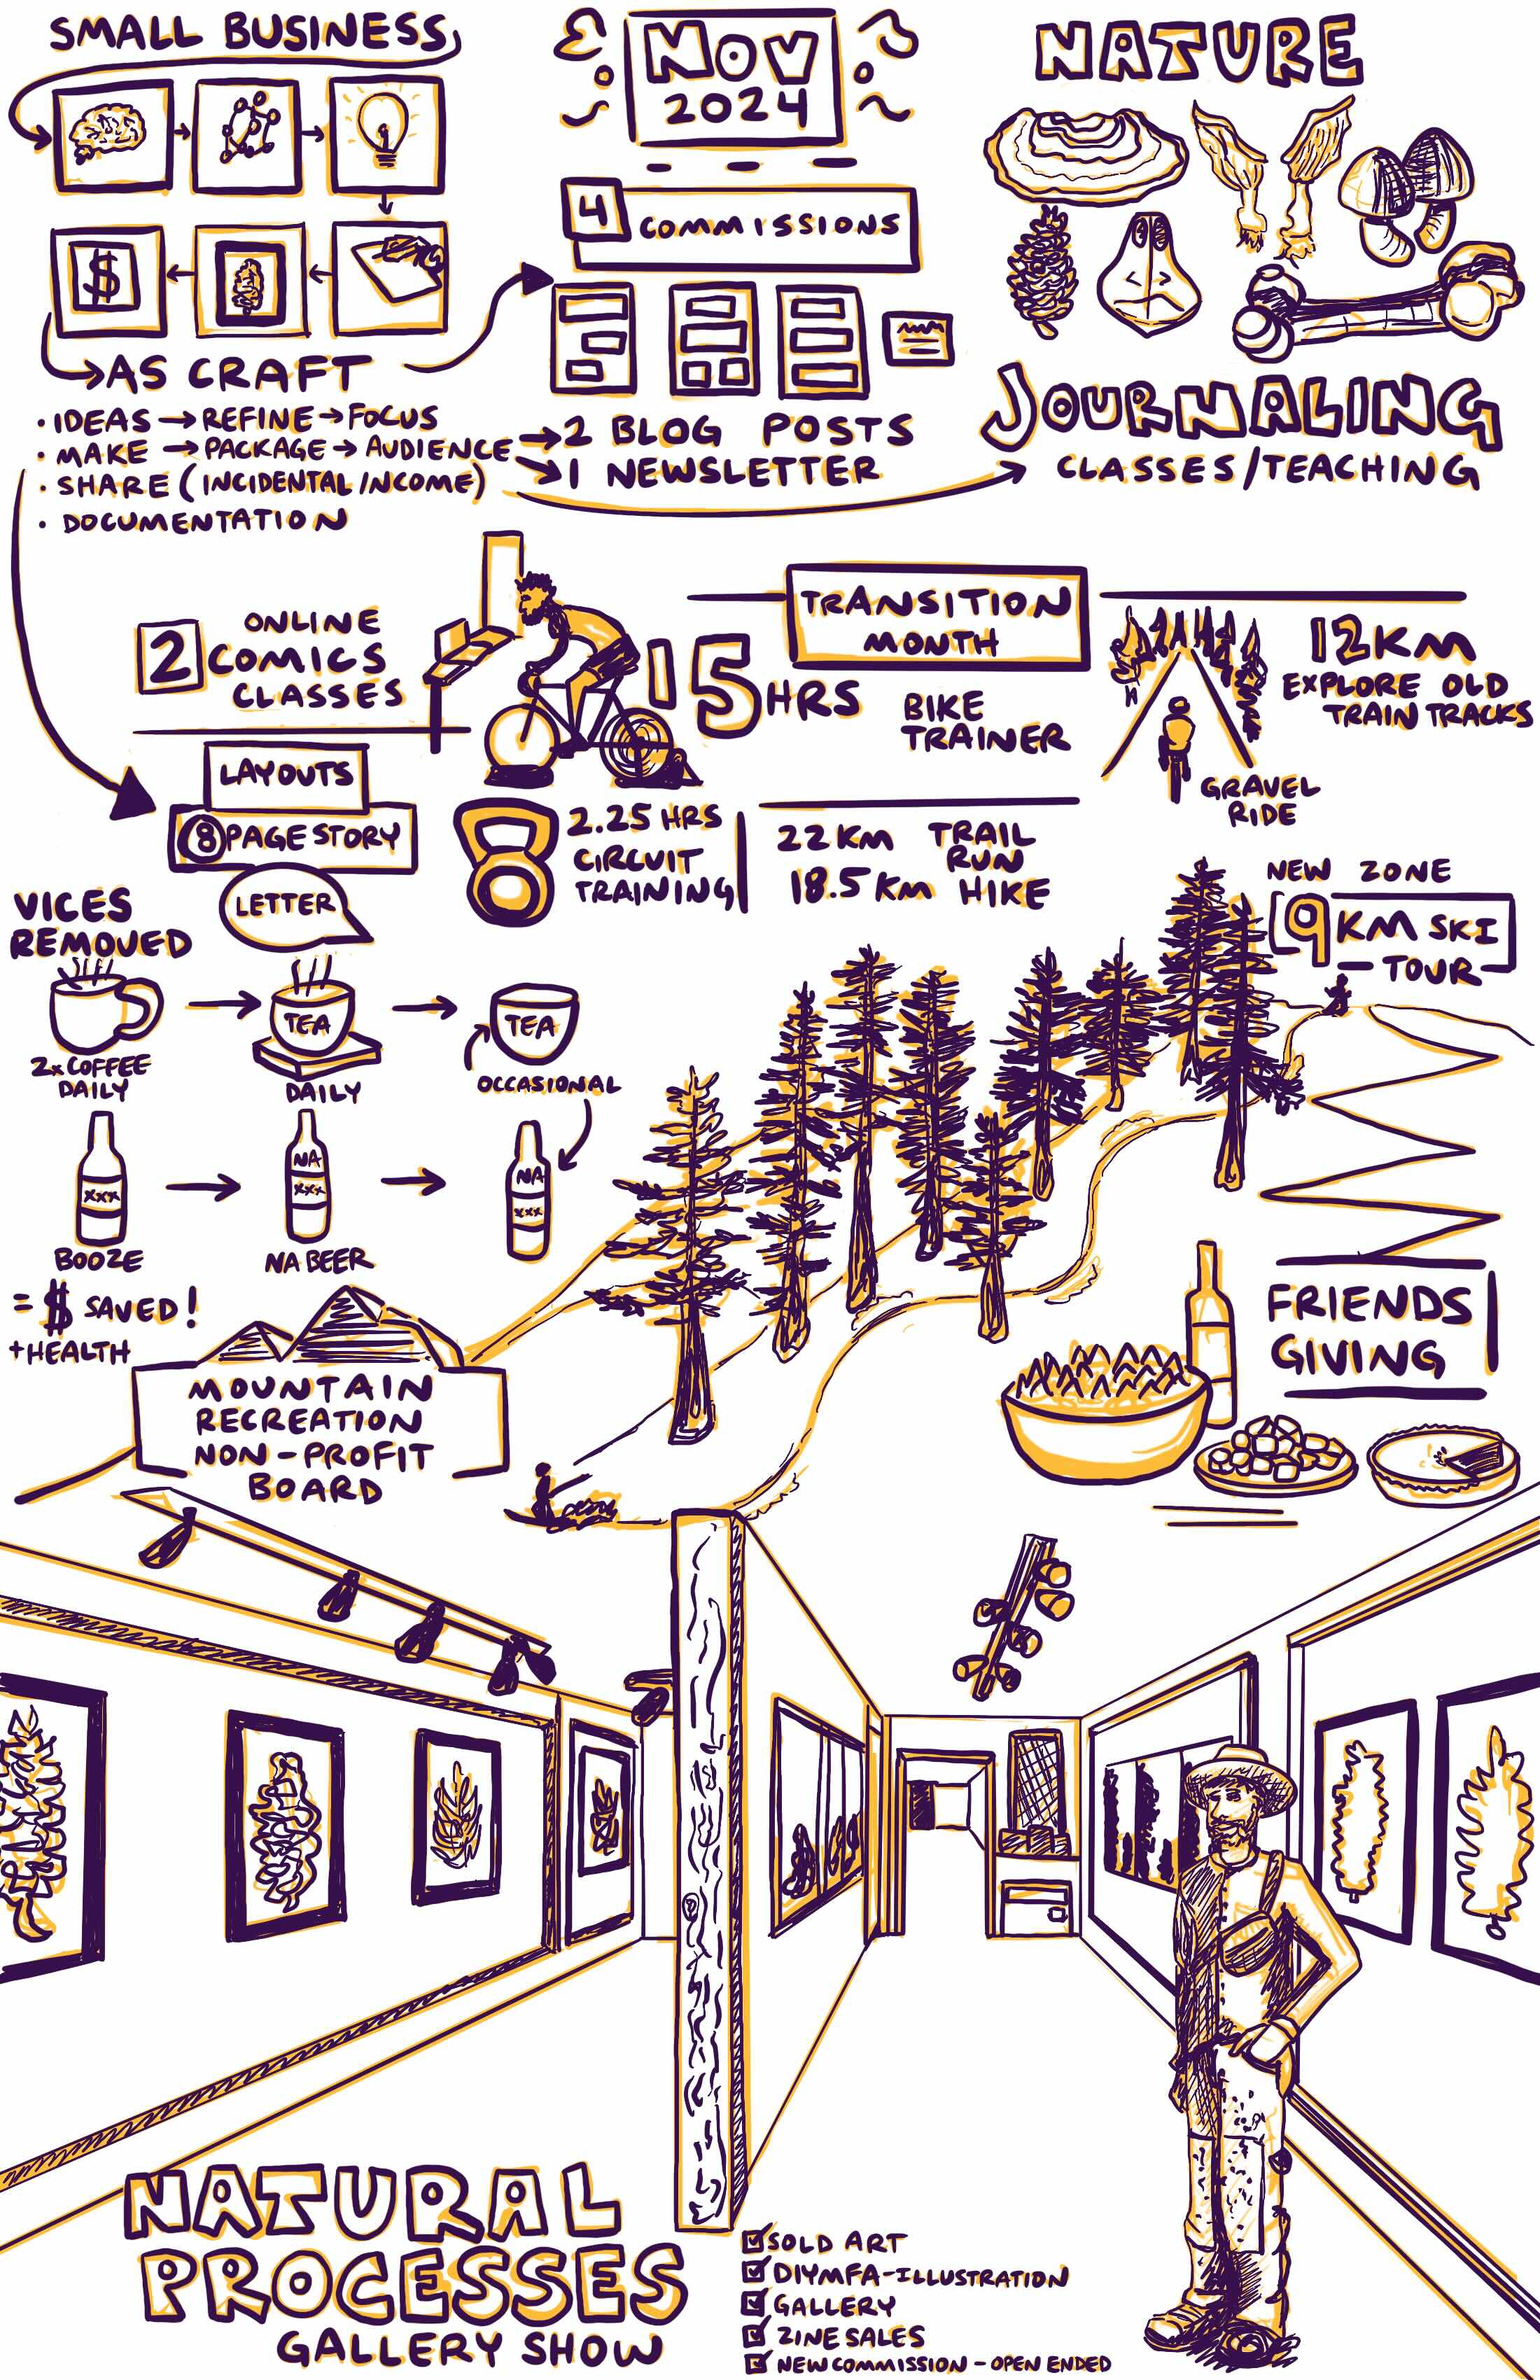 SMALL BUSINESS
$
AS CRAFT
• IDEAS → REFINE → FOCUS
• MAKE → PACKAGE → AUDIENCE
• SHARE (INCIDENTAL INCOME)
• DOCUMENTATION
NOV
2024
4 COMMISSIONS
→ 2 BLOG POSTS
→ 1 NEWSLETTER
NATURE
JOURNALING
CLASSES/TEACHING
2 ONLINE
COMICS
CLASSES
TRANSITION
MONTH
15 HRS BIKE
TRAINER
12KM
EXPLORE OLD
TRAIN TRACKS
GRAVEL
RIDE
LAYOUTS
8 PAGE STORY
LETTER
2.25 HRS
CIRCUIT
TRAINING
22 KM TRAIL
RUN
18.5 KM HIKE
NEW ZONE
9 KM SKI
TOUR
VICES
REMOVED
TEA
TEA
2x COFFEE
DAILY
DAILY
OCCASIONAL
XXX
NA
XXX
NA
XXX
BOOZE
NA BEER
= $ SAVED!
+HEALTH
MOUNTAIN
RECREATION
NON-PROFIT
BOARD
FRIENDS
GIVING
NATURAL
PROCESSES
GALLERY SHOW
☑ SOLD ART
☑ DIYMFA-ILLUSTRATION
☑ GALLERY
☑ ZINE SALES
☑ NEW COMMISSION - OPEN ENDED